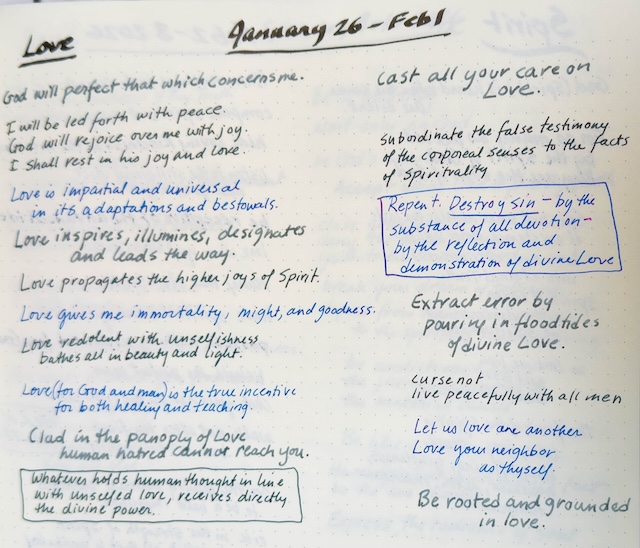 Love
January 26 - Feb 1
God will perfect that which concerns me.
I will be led forth with peace.
God will rejoice over me with joy.
I shall rest in his joy and love.
Love is impartial and universal
in its adaptations and bestowals.
Love inspires, illumines, designates
and leads the way.
Love propagates the higher joys of Spirit.
Love gives me immortality, might, and goodness.
Love redolent with unselfishness
bathes all in beauty and light.
Love (for God and man) is the true incentive
for both healing and teaching.
Clad in the panoply of Love
human hatred cannot reach you.
Whatever holds human thought in line
with unselfed love, receives directly
the divine power.
Cast all your care on
Love.
Subordinate the false testimony
of the corporeal senses to the facts
of Spirituality
Repent. Destroy sin - by the
substance of all devotion -
by the reflection and
demonstration of divine Love
Extract error by
pouring in floodtides
of divine Love.
Curse not
live peacefully with all men
Let us love one another
Love your neighbor
as thyself.
Be rooted and grounded
in love.